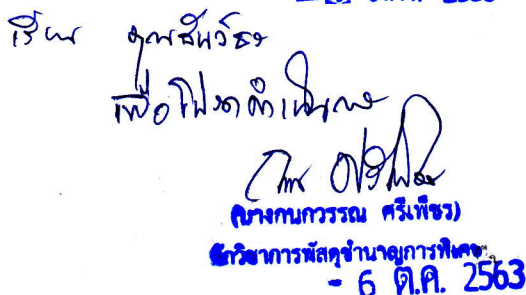 2563
เรียน คุณธันวัธร
เพื่อโปรดดำเนินการ
(นางกนกวรรณ ศรีเพ็ชร)
นักวิชาการพัสดุชำนาญการพิเศษ
- 6 ต.ค. 2563